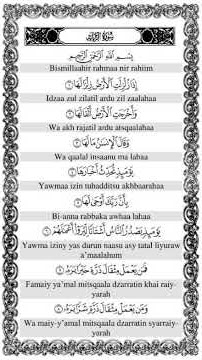 سورة الزلزلة
بِسْمِ اللَّهِ الرَّحْمَٰنِ الرَّحِيمِ
Bismillaahir rahmaa nir rahiim
إِذَا زُلْزِلَتِ الْأَرْضُ زِلْزَالَهَا
Idzaa zul zilatil ardu zil zaalahaa
وَأَخْرَجَتِ الْأَرْضُ أَثْقَالَهَا
Wa akh rajatil ardu atsqaalahaa
وَقَالَ الْإِنْسَانُ مَا لَهَا
Wa qaalal insaanu ma lahaa
يَوْمَئِذٍ تُحَدِّثُ أَخْبَارَهَا
Yawmaa izin tuhadditsu akhbaarahaa
بِأَنَّ رَبَّكَ أَوْحَىٰ لَهَا
Bi-anna rabbaka awhaa lahaa
يَوْمَئِذٍ يَصْدُرُ النَّاسُ أَشْتَاتًا لِيُرَوْا أَعْمَالَهُمْ
Yawma iziny yas darun naasu asy tatal liyuraw
a'maalahum
فَمَنْ يَعْمَلْ مِثْقَالَ ذَرَّةٍ خَيْرًا يَرَهُ
Famaiy ya'mal mitsqaala dzarratin khai raiy-
yarah
وَمَنْ يَعْمَلْ مِثْقَالَ ذَرَّةٍ شَرًّا يَرَهُ
Wa maiy-y'amal mitsqaala dzarratin syarraiy-
yarah